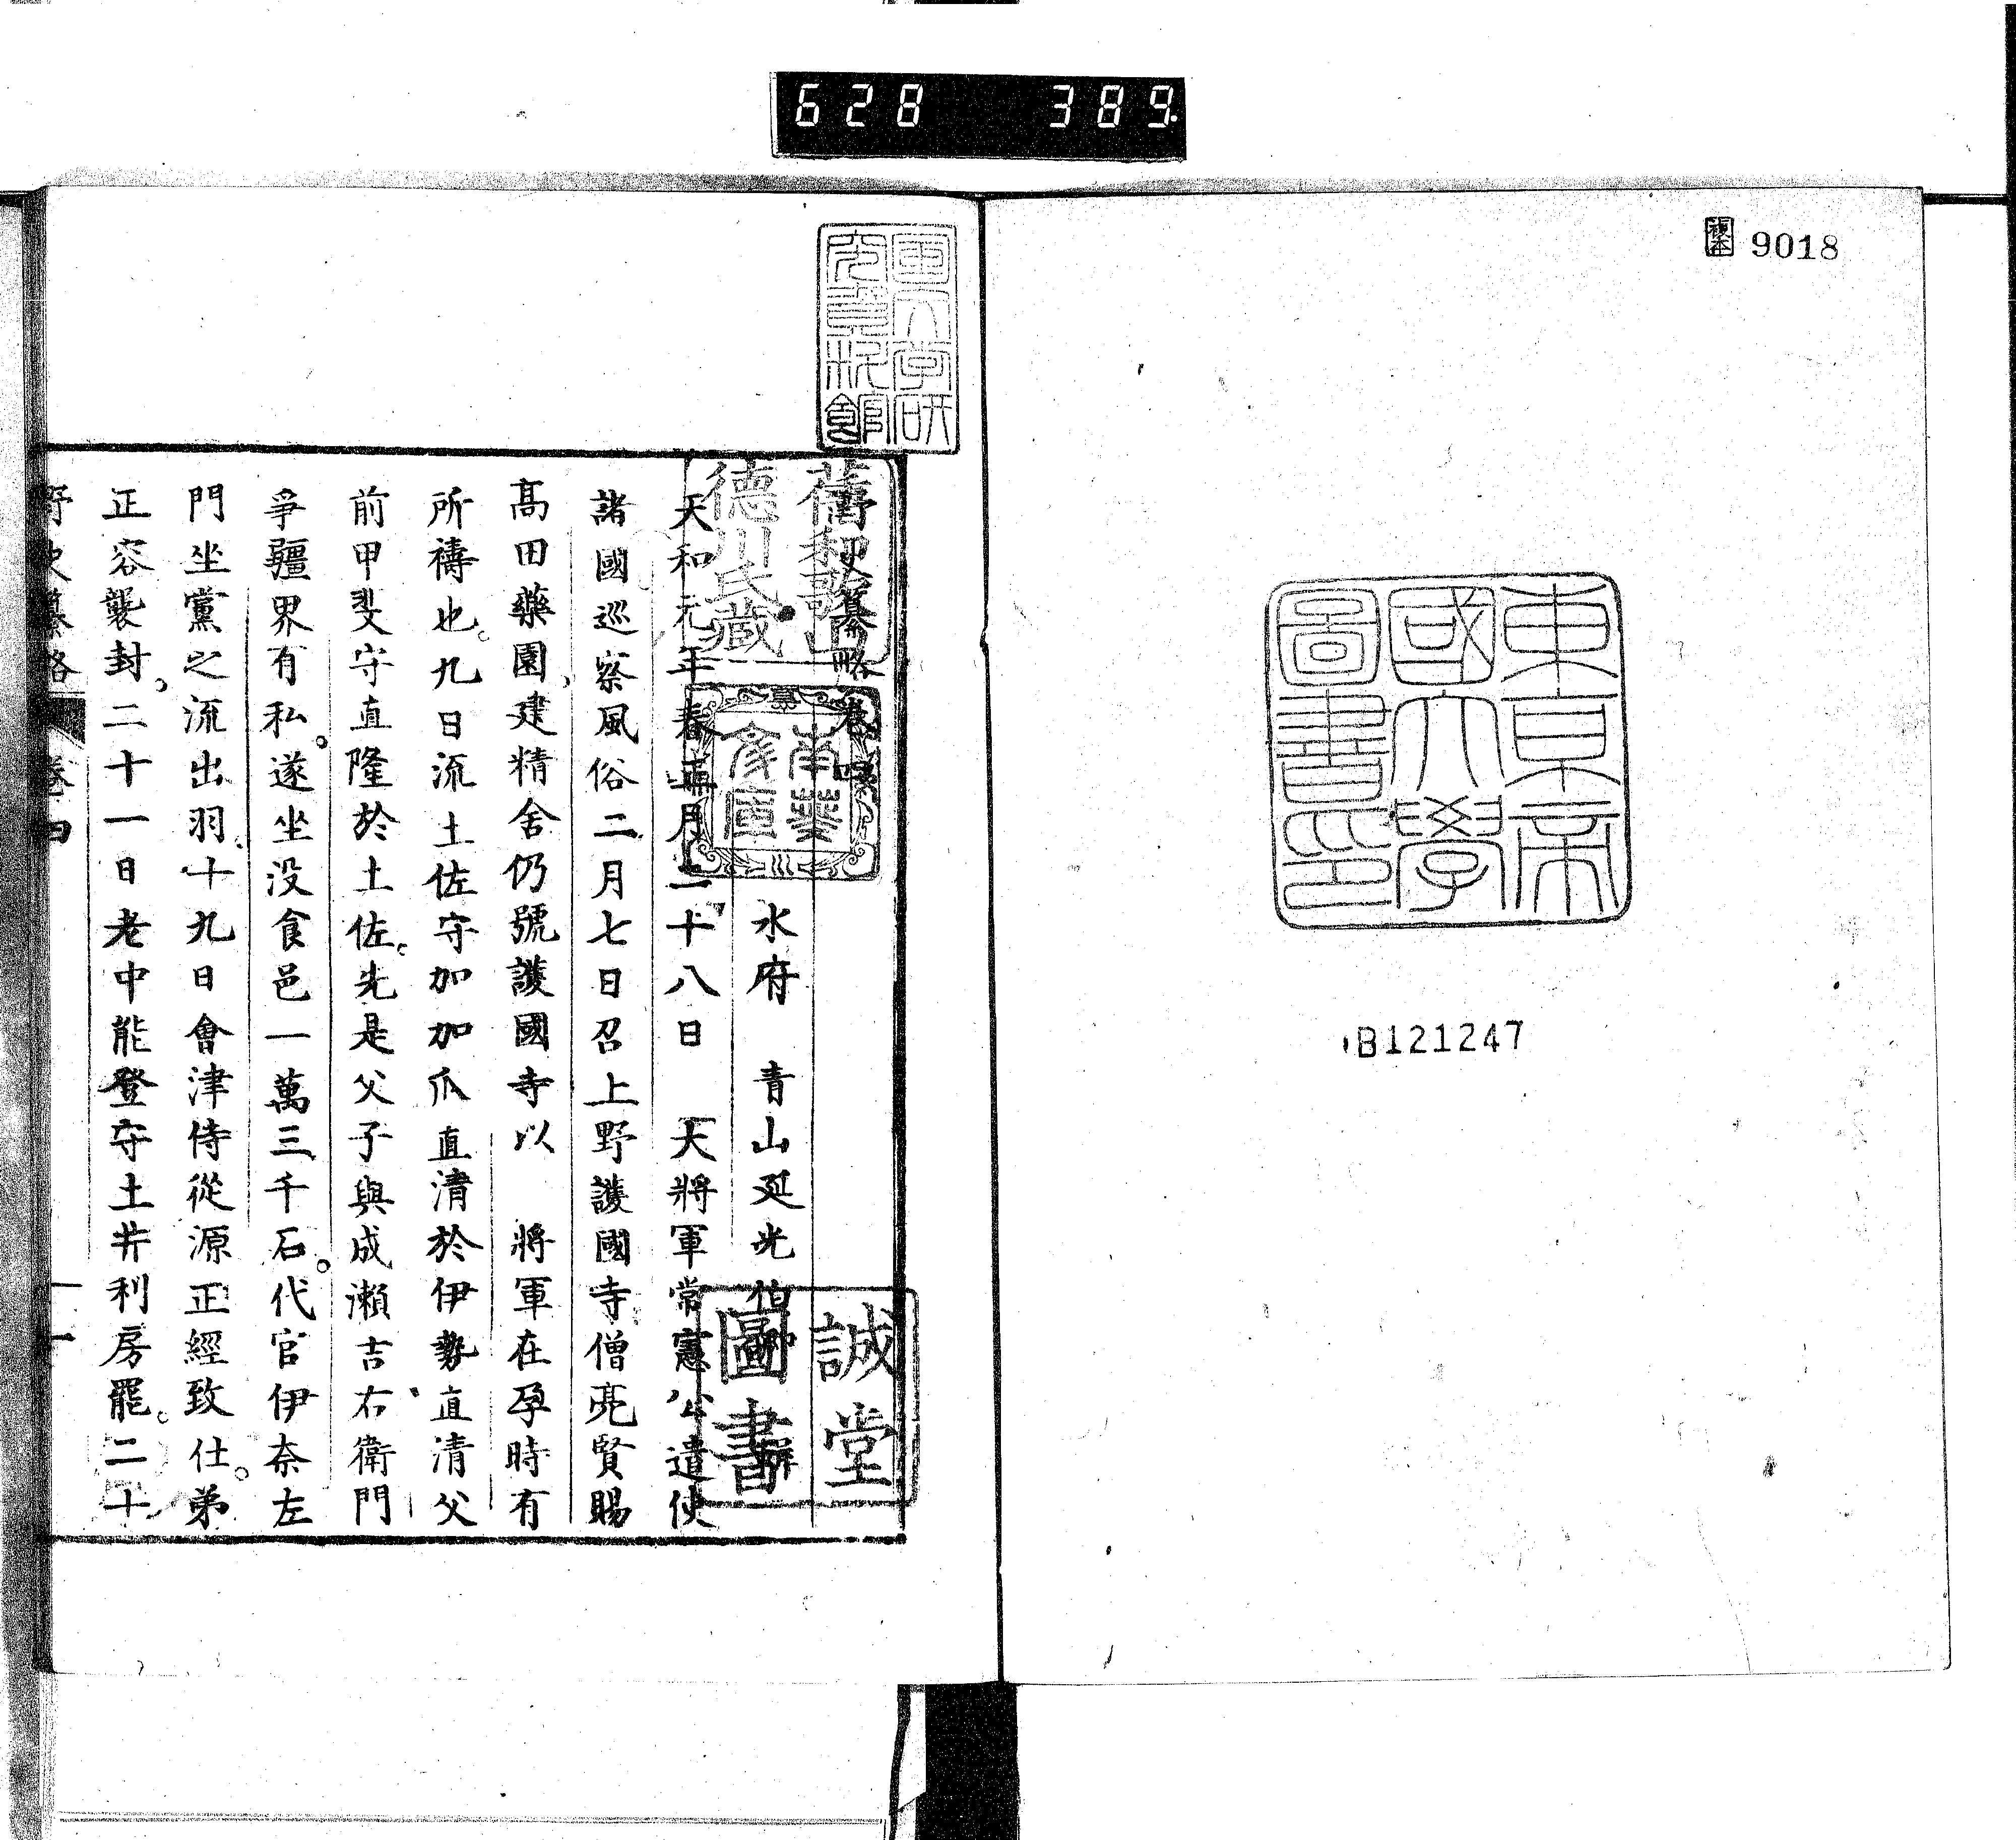 628 389
複本 9018
東京帝
國大學
圖書印
B121247
国文学研
究資料館
舊和歌山
德川氏藏
南葵
文庫
誠堂
圖書
野史纂略卷之四
水府 青山延光伯卿 輯
天和元年春正月二十八日 大將軍常憲公遣使
諸國巡察風俗二月七日召上野護國寺僧亮賢賜
高田藥園建精舍仍號護國寺以 將軍在孕時有
所禱也九日流土佐守加加爪直清於伊勢直清父
前甲斐守直隆於土佐先是父子與成瀨吉右衛門
爭疆界有私遂坐沒食邑一萬三千石代官伊奈左
門坐黨之流出羽十九日會津侍從源正經致仕弟
正容襲封二十一日老中能登守土井利房罷二十
野史纂略 卷四 一